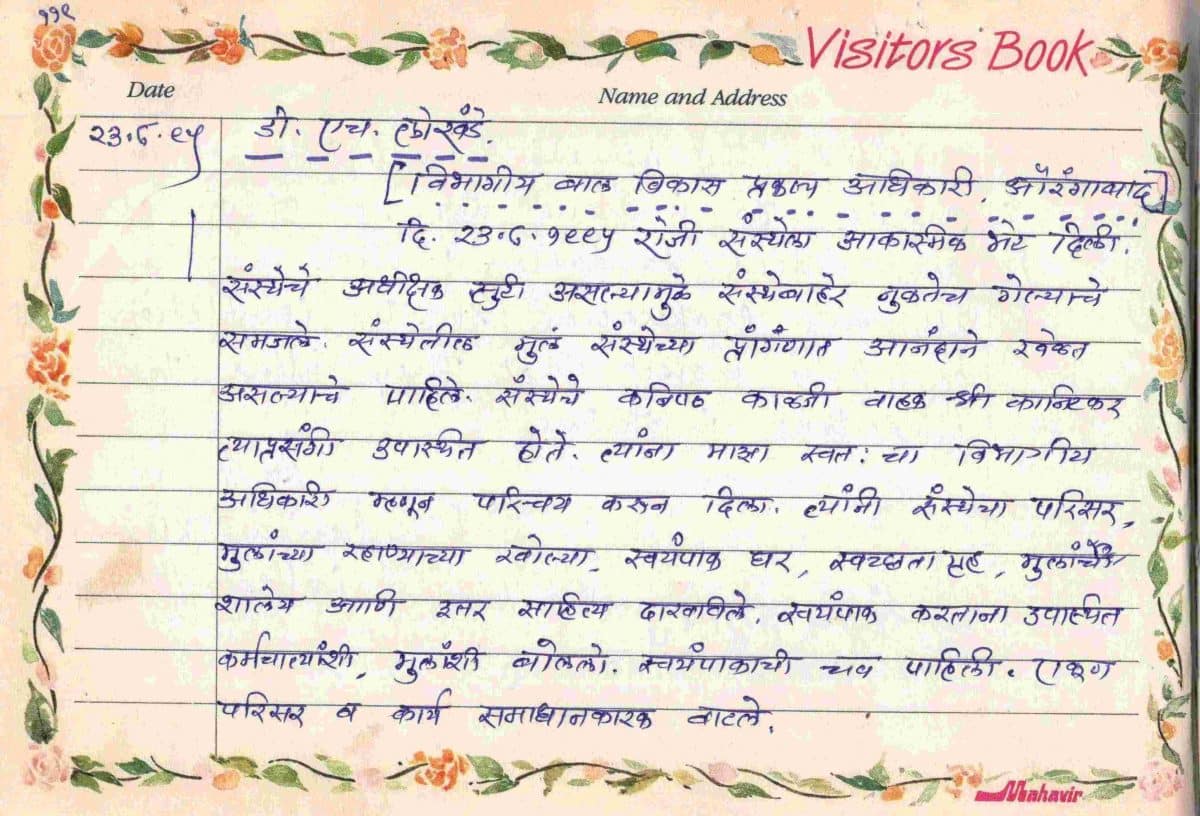 ११९
Visitors Book
Date Name and Address
२३.८.९५ डी. एच. लोखंडे.
[विभागीय बाल विकास प्रकल्प अधिकारी, औरंगाबाद]
दि. २३.८.१९९५ रोजी संस्थेला आकास्मिक भेट दिली.
संस्थेचे अधीक्षक सुटी असल्यामुळे संस्थेबाहेर नुकतेच गेल्याचे
समजले. संस्थेतील मुलं संस्थेच्या प्रांगणात आनंदाने खेळत
असल्याचे पाहिले. संस्थेचे कनिष्ठ काळजी वाहक श्री कानिटकर
त्याप्रसंगी उपास्थित होते. त्यांना माझा स्वत: चा विभागीय
अधिकारी म्हणून परिचय करून दिला. त्यांनी संस्थेचा परिसर,
मुलांच्या रहाण्याच्या खोल्या, स्वयंपाक घर, स्वच्छता गृह, मुलांचे
शालेय आणि इतर साहित्य दाखविले. स्वयंपाक करताना उपास्थित
कर्मचाऱ्यांशी, मुलांशी बोललो. स्वयंपाकाची चव पाहिली. एकूण
परिसर व कार्य समाधानकारक वाटले.
Mahavir